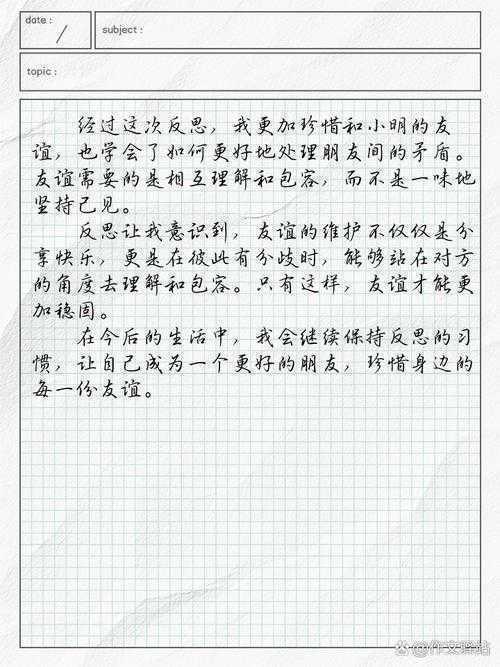 date :
subject :
topic :
经过这次反思，我更加珍惜和小明的友
谊，也学会了如何更好地处理朋友间的矛盾。
友谊需要的是相互理解和包容，而不是一味地
坚持己见。
反思让我意识到，友谊的维护不仅仅是分
享快乐，更是在彼此有分歧时，能够站在对方
的角度去理解和包容。只有这样，友谊才能更
加稳固。
在今后的生活中，我会继续保持反思的习
惯，让自己成为一个更好的朋友，珍惜身边的
每一份友谊。
@作文驿站